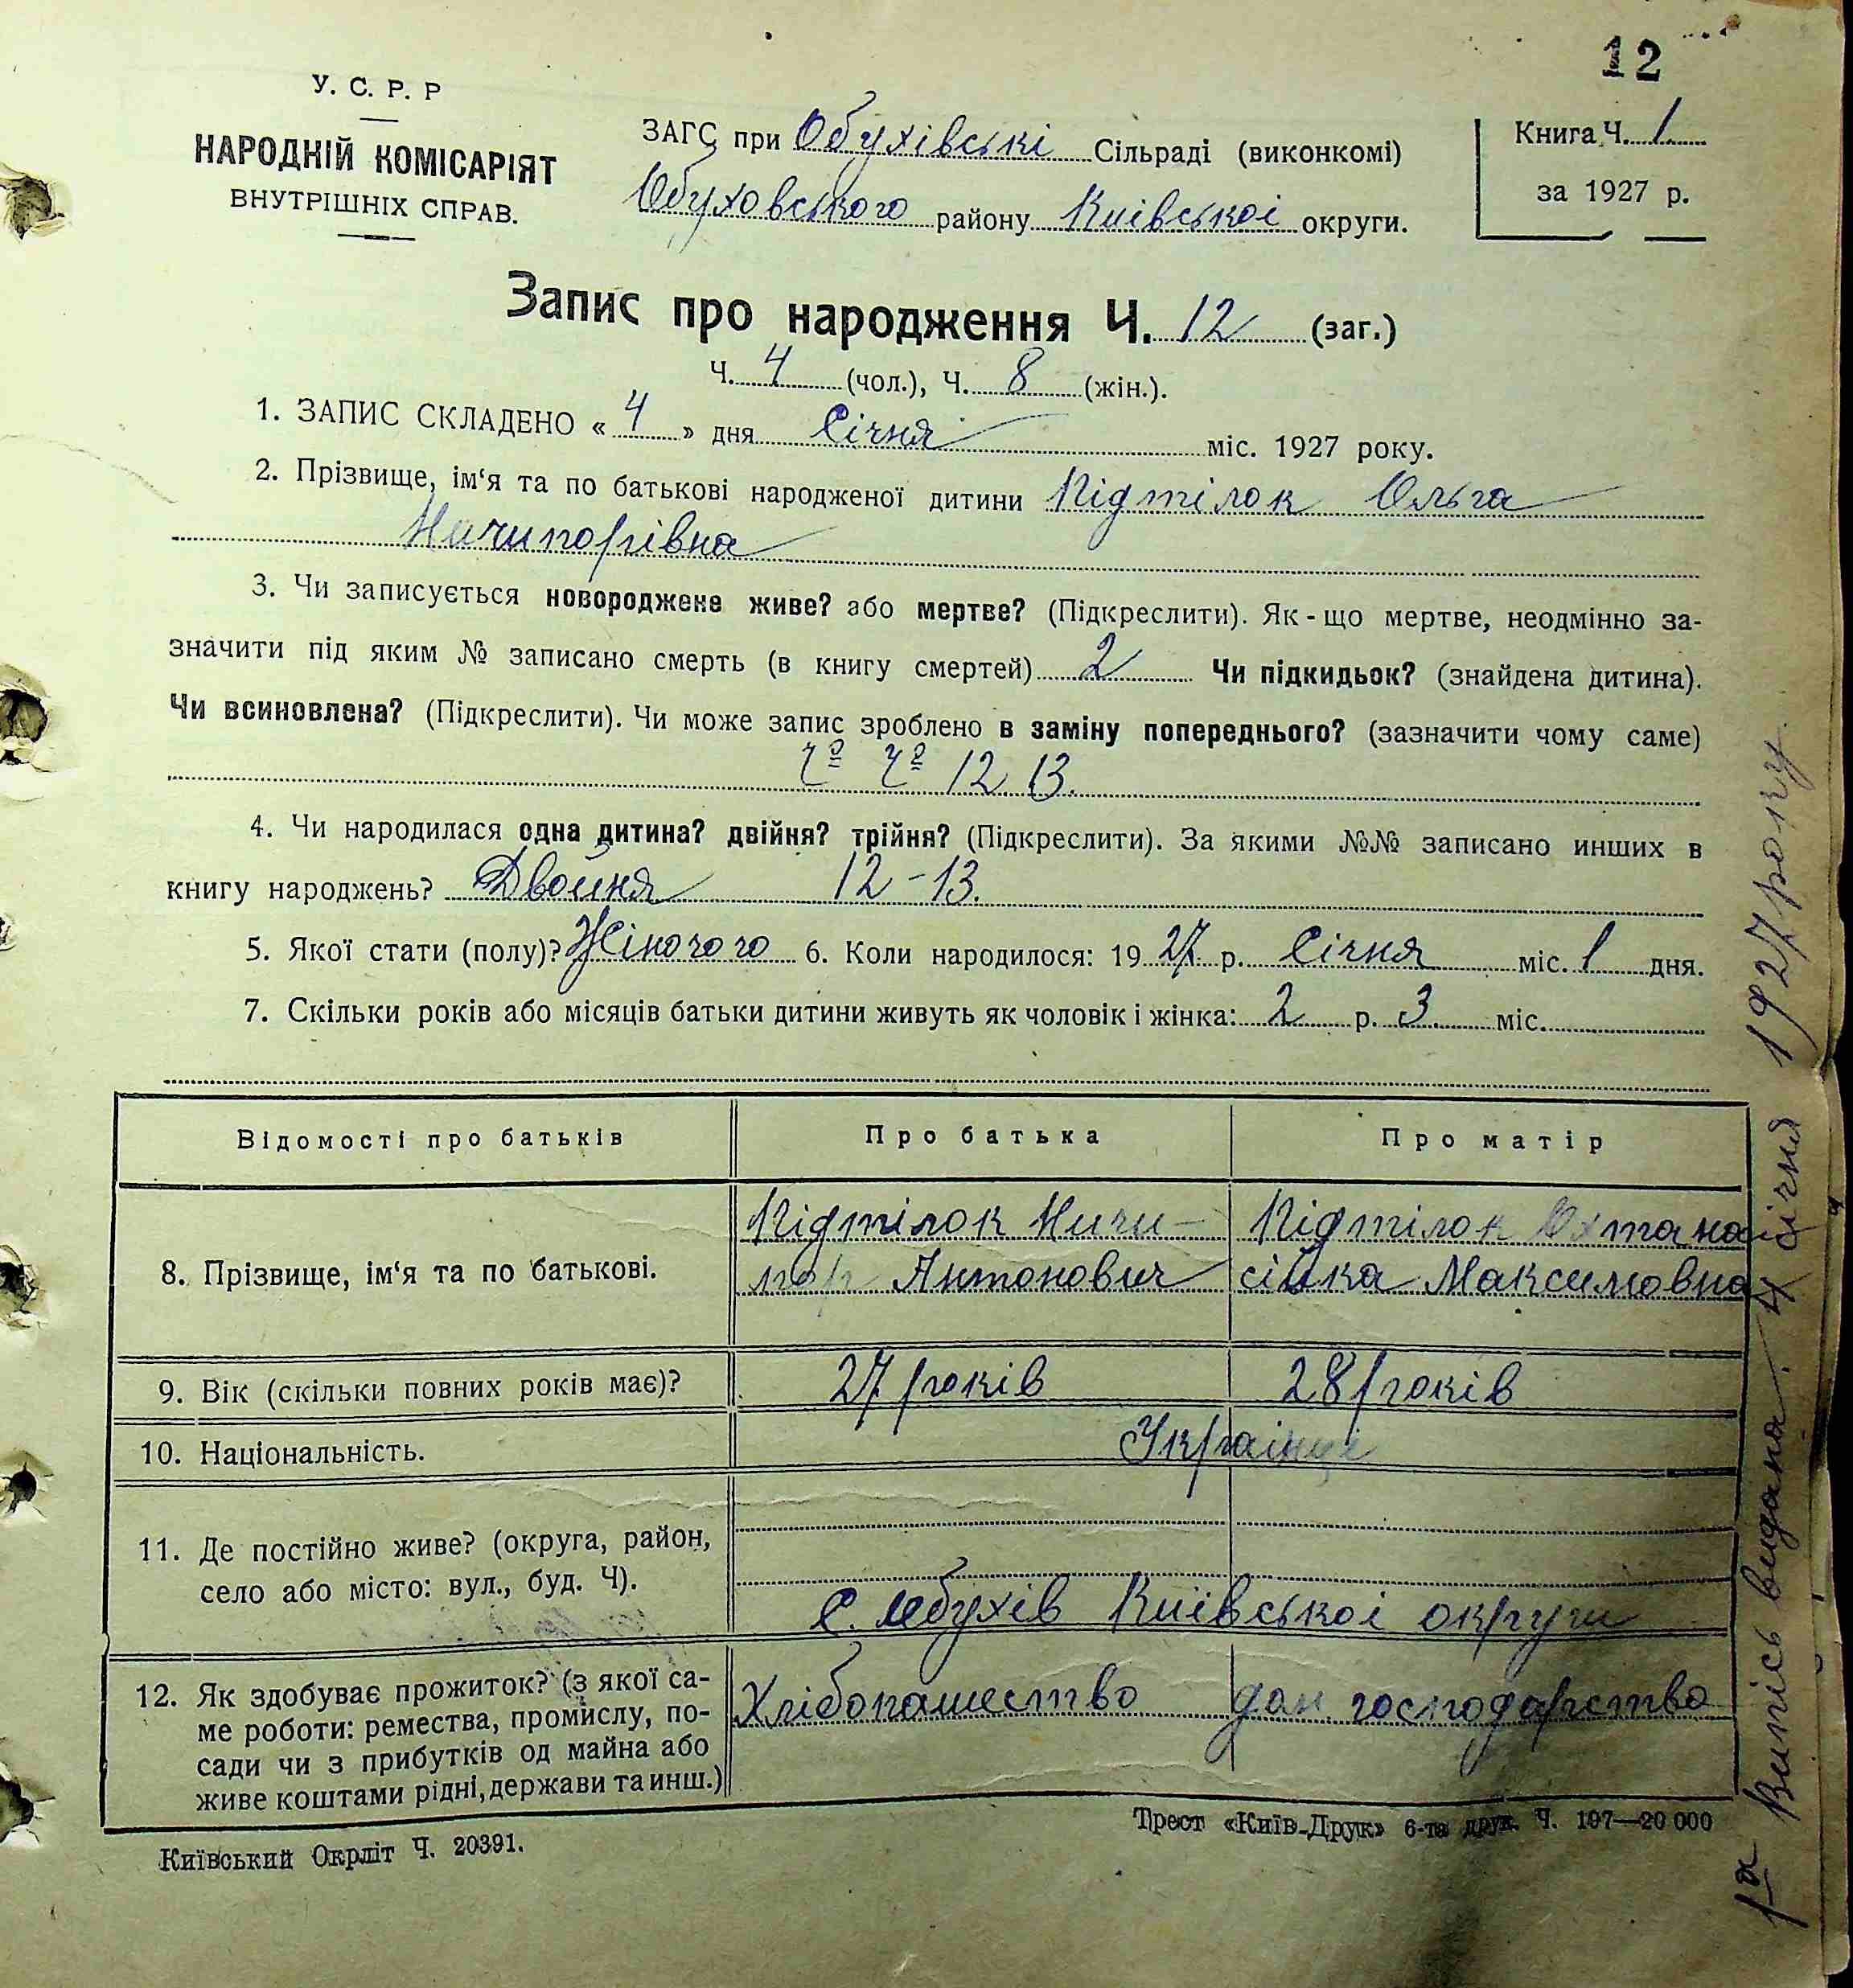 12
У. С. Р. Р
НАРОДНІЙ КОМІСАРІЯТ
ВНУТРІШНІХ СПРАВ.
ЗАГС при Обухівські Сільраді (виконкомі)
Обуховського району Київськоі округи.
Книга Ч. 1
за 1927 р.
Запис про народження Ч. 12 (заг.)
Ч. 4 (чол.), Ч. 8 (жін.).
1. ЗАПИС СКЛАДЕНО « 4 » дня Січня міс. 1927 року.
2. Прізвище, ім‘я та по батькові народженої дитини Підтілок Ольга
Ничипорівна
3. Чи записується новороджене живе? або мертве? (Підкреслити). Як - що мертве, неодмінно за-
значити під яким № записано смерть (в книгу смертей) 2 Чи підкидьок? (знайдена дитина).
Чи всиновлена? (Підкреслити). Чи може запис зроблено в заміну попереднього? (зазначити чому саме)
12 13.
4. Чи народилася одна дитина? двійня? трійня? (Підкреслити). За якими №№ записано инших в
книгу народжень? Двойня 12-13.
5. Якої стати (полу)? Жіночого 6. Коли народилося: 1927 р. Січня міс. 1 дня.
7. Скільки років або місяців батьки дитини живуть як чоловік і жінка: 2 р. 3 міс.
Відомості про батьків Про батька Про матір
8. Прізвище, ім‘я та по батькові.
Підтілок Ничи-
пор Антонович
Підтілок
Максимовна
9. Вік (скільки повних років має)? 27 років 28 років
10. Національність. Українці
11. Де постійно живе? (округа, район,
село або місто: вул., буд. Ч).
С. Обухів Київськоі округи
12. Як здобуває прожиток? (з якої са-
ме роботи: ремества, промислу, по-
сади чи з прибутків од майна або
живе коштами рідні, держави та инш.)
Хлібопашество дом господарство
Київський Окрліт Ч. 20391.
Трест «Київ-Друк» 6-та друк. Ч. 197—20 000
1а Випісь видана 4 січня 1927 року